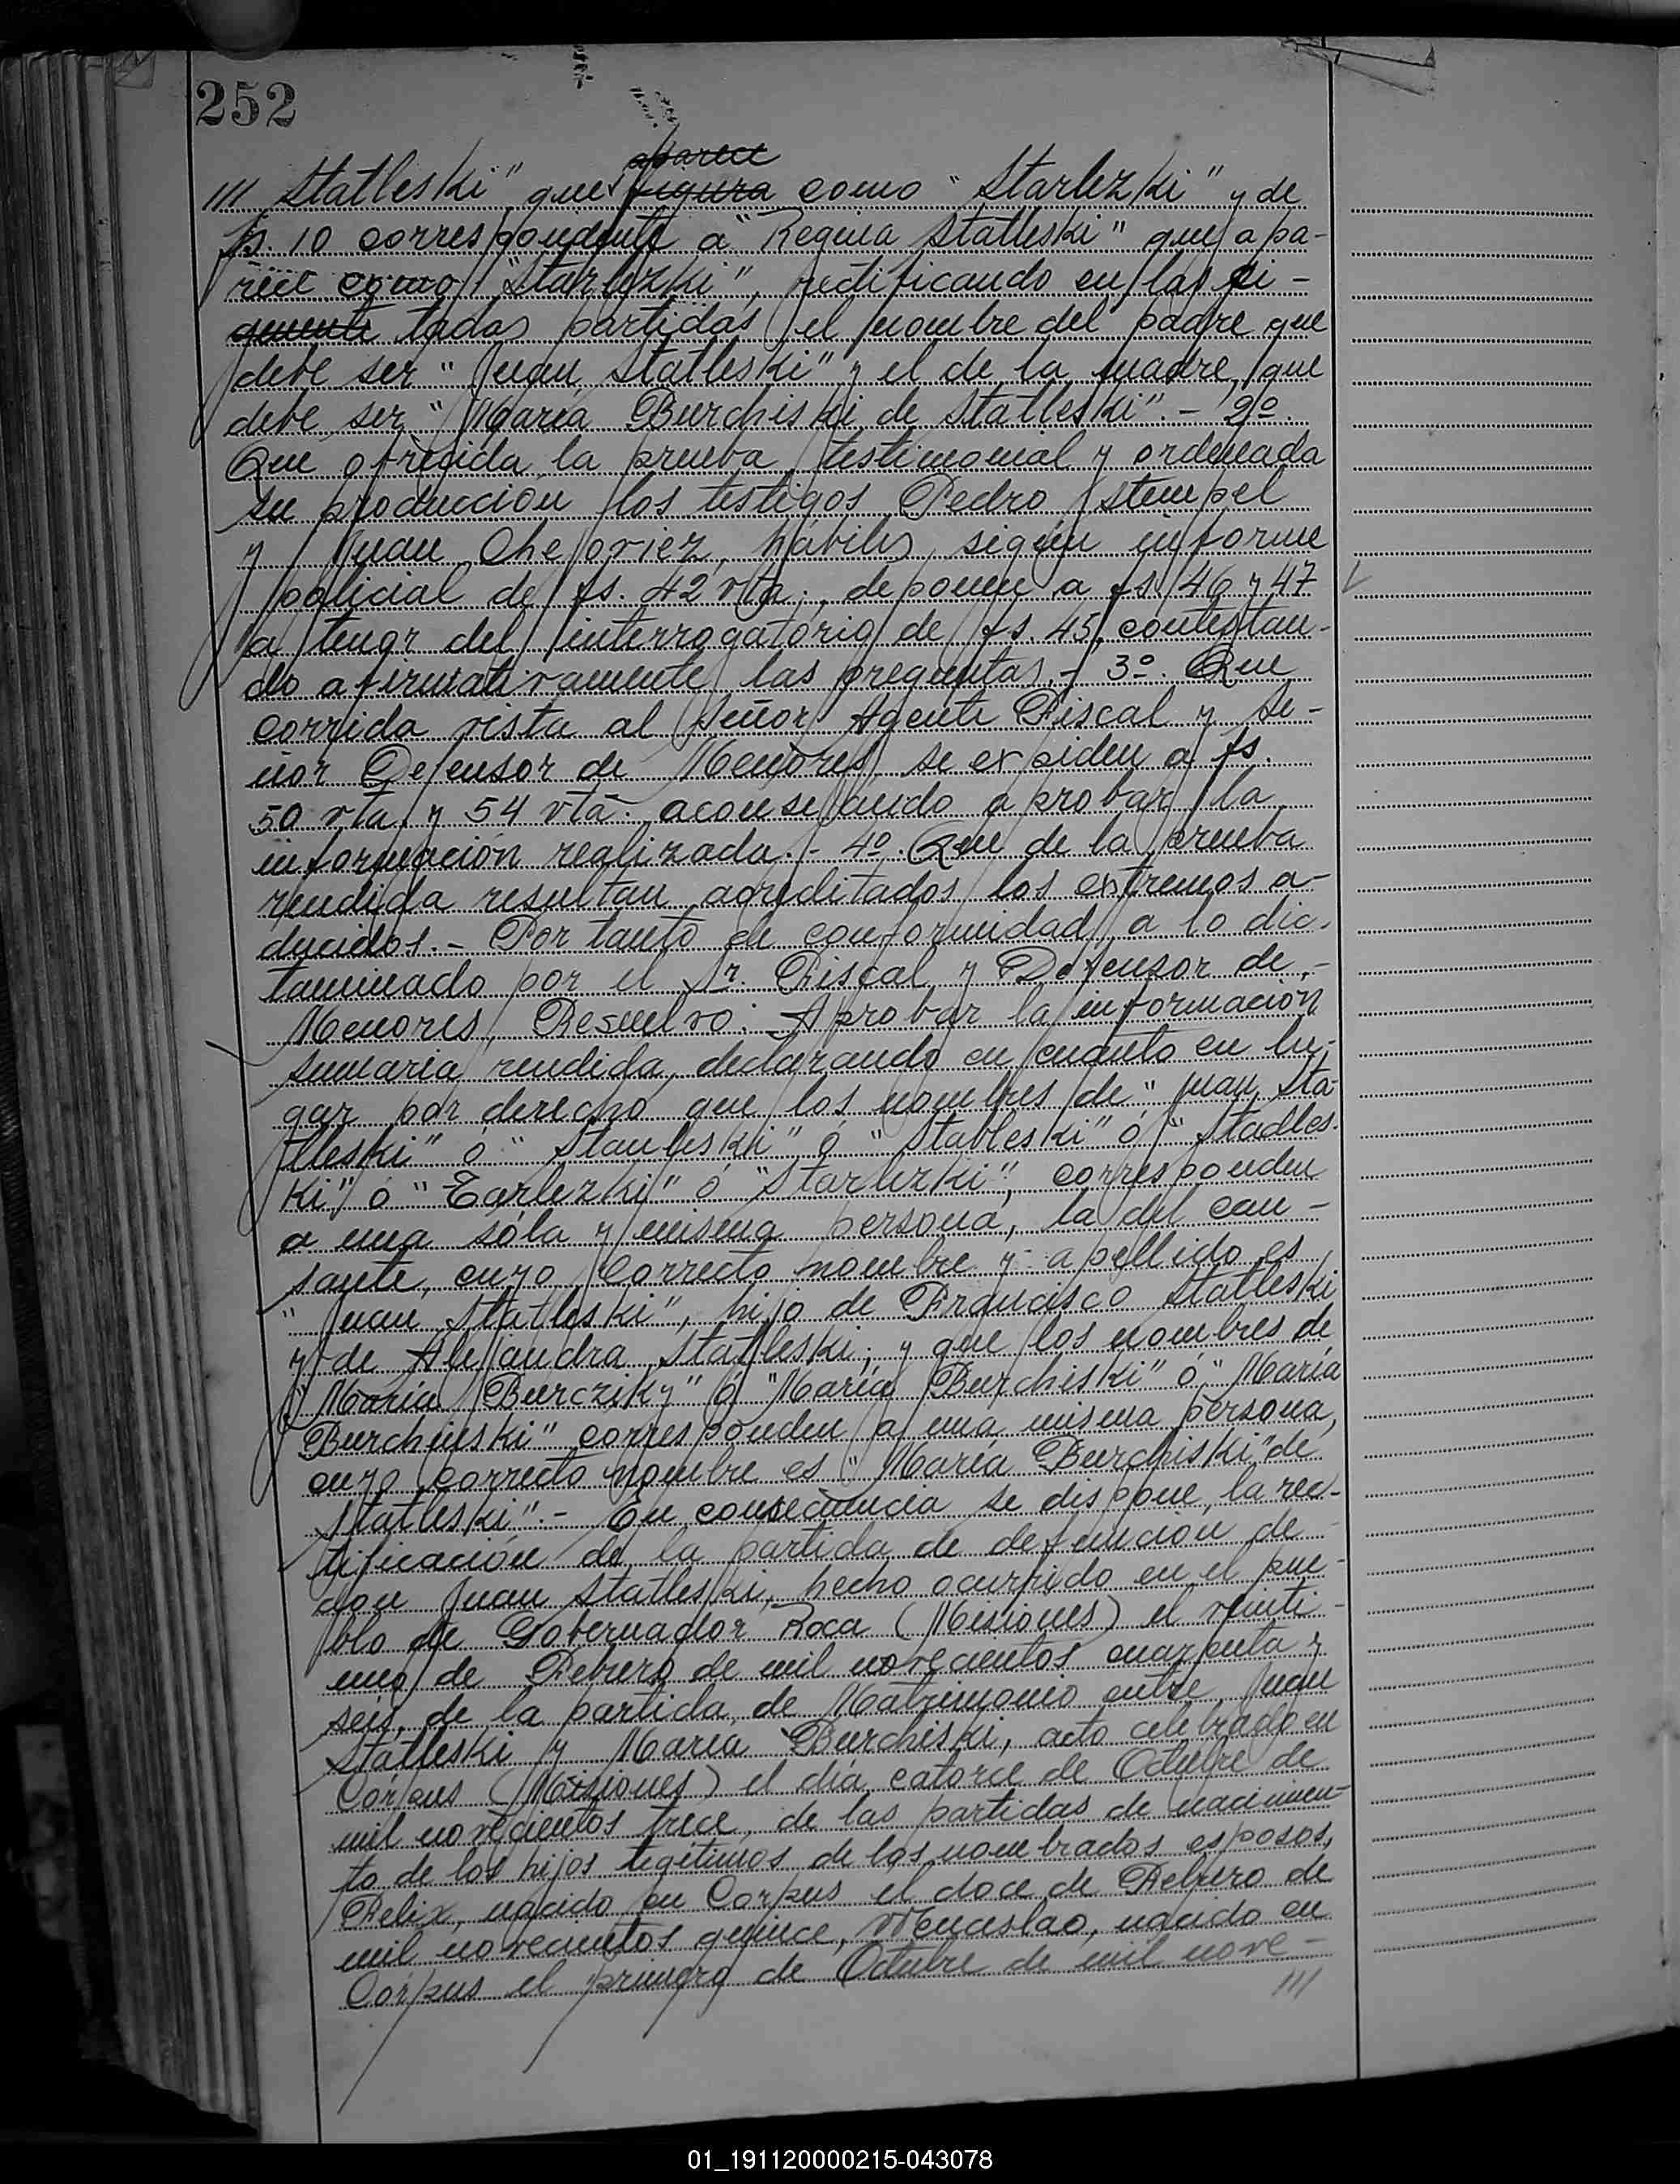 252
aparece
/// Statleski", que figura como "Starlezki" y de
fs. 10 correspondente a "Regina Statleski" que apa-
rece como "Starlezki", rectificando en las ci-
tadas partidas el nombre del padre que
debe ser "Juan Statleski" y el de la madre, que
debe ser "María Burchiski de Statleski".- 2º.
Que ofrecida la prueba testimonial y ordenada
su producción los testigos Pedro Stempel
y Juan, hábiles, según informe
policial de fs. 42 vta., deponen a fs. 46 y 47
a tenor del interrogatorio de fs. 45, contestan-
do afirmativamente las preguntas.- 3º. Que
corrida vista al Señor Agente Fiscal y Se-
ñor Defensor de Menores, se expiden a fs.
50 vta. y 54 vta. aconsejando aprobar la
información realizada.- 4º. Que de la prueba
rendida resultan acreditados los extremos a-
ducidos.- Por tanto de conformidad a lo dic-
taminado por el Sr. Fiscal y Defensor de
Menores, Resuelvo: Aprobar la información
sumaria rendida, declarando en cuanto en lu-
gar por derecho que los nombres de "Juan Sta-
tleski" ó "Stanleski" ó "Stableski" ó "Stadles-
ki" ó "Earlezki" ó "Starlezki", corresponden
a una sóla y misma persona, la del cau-
sante, cuyo correcto nombre y apellido es
"Juan Statleski", hijo de Francisco Statleski
y de Alejandra Statleski; y que los nombres de
"María Burcziky" ó "María Burchiski" ó "María
Burchinski" corresponden a una misma persona,
cuyo correcto nombre es "María Burchiski" de
Statleski".- En consecuencia se dispone, la rec-
tificación de la partida de defunción de
don Juan Statleski, hecho ocurrido en el pue-
blo de Gobernador Roca (Misiones) el veinti-
uno de Febrero de mil novecientos cuarenta y
seis, de la partida de Matrimonio entre Juan
Statleski y María Burchiski, acto celebrado en
Córpus (Misiones) el día catorce de Octubre de
mil novecientos trece, de las partidas de nacimien-
to de los hijos legítimos de los nombrados esposos,
Felix, nacido en Corpus el doce de Febrero de
mil novecientos quince, Wenceslao, nacido en
Córpus el primero de Octubre de mil nove-
///
01_191120000215-043078